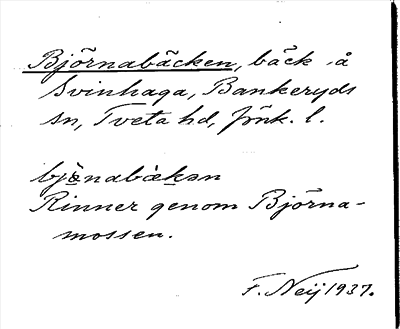 Björnabäcken, bäck å
Svinhaga, Bankeryds
sn, Tveta hd, Jönk. l.
bjònabàkən
Rinner genom Björna-
mossen.
F. Neij 1937.